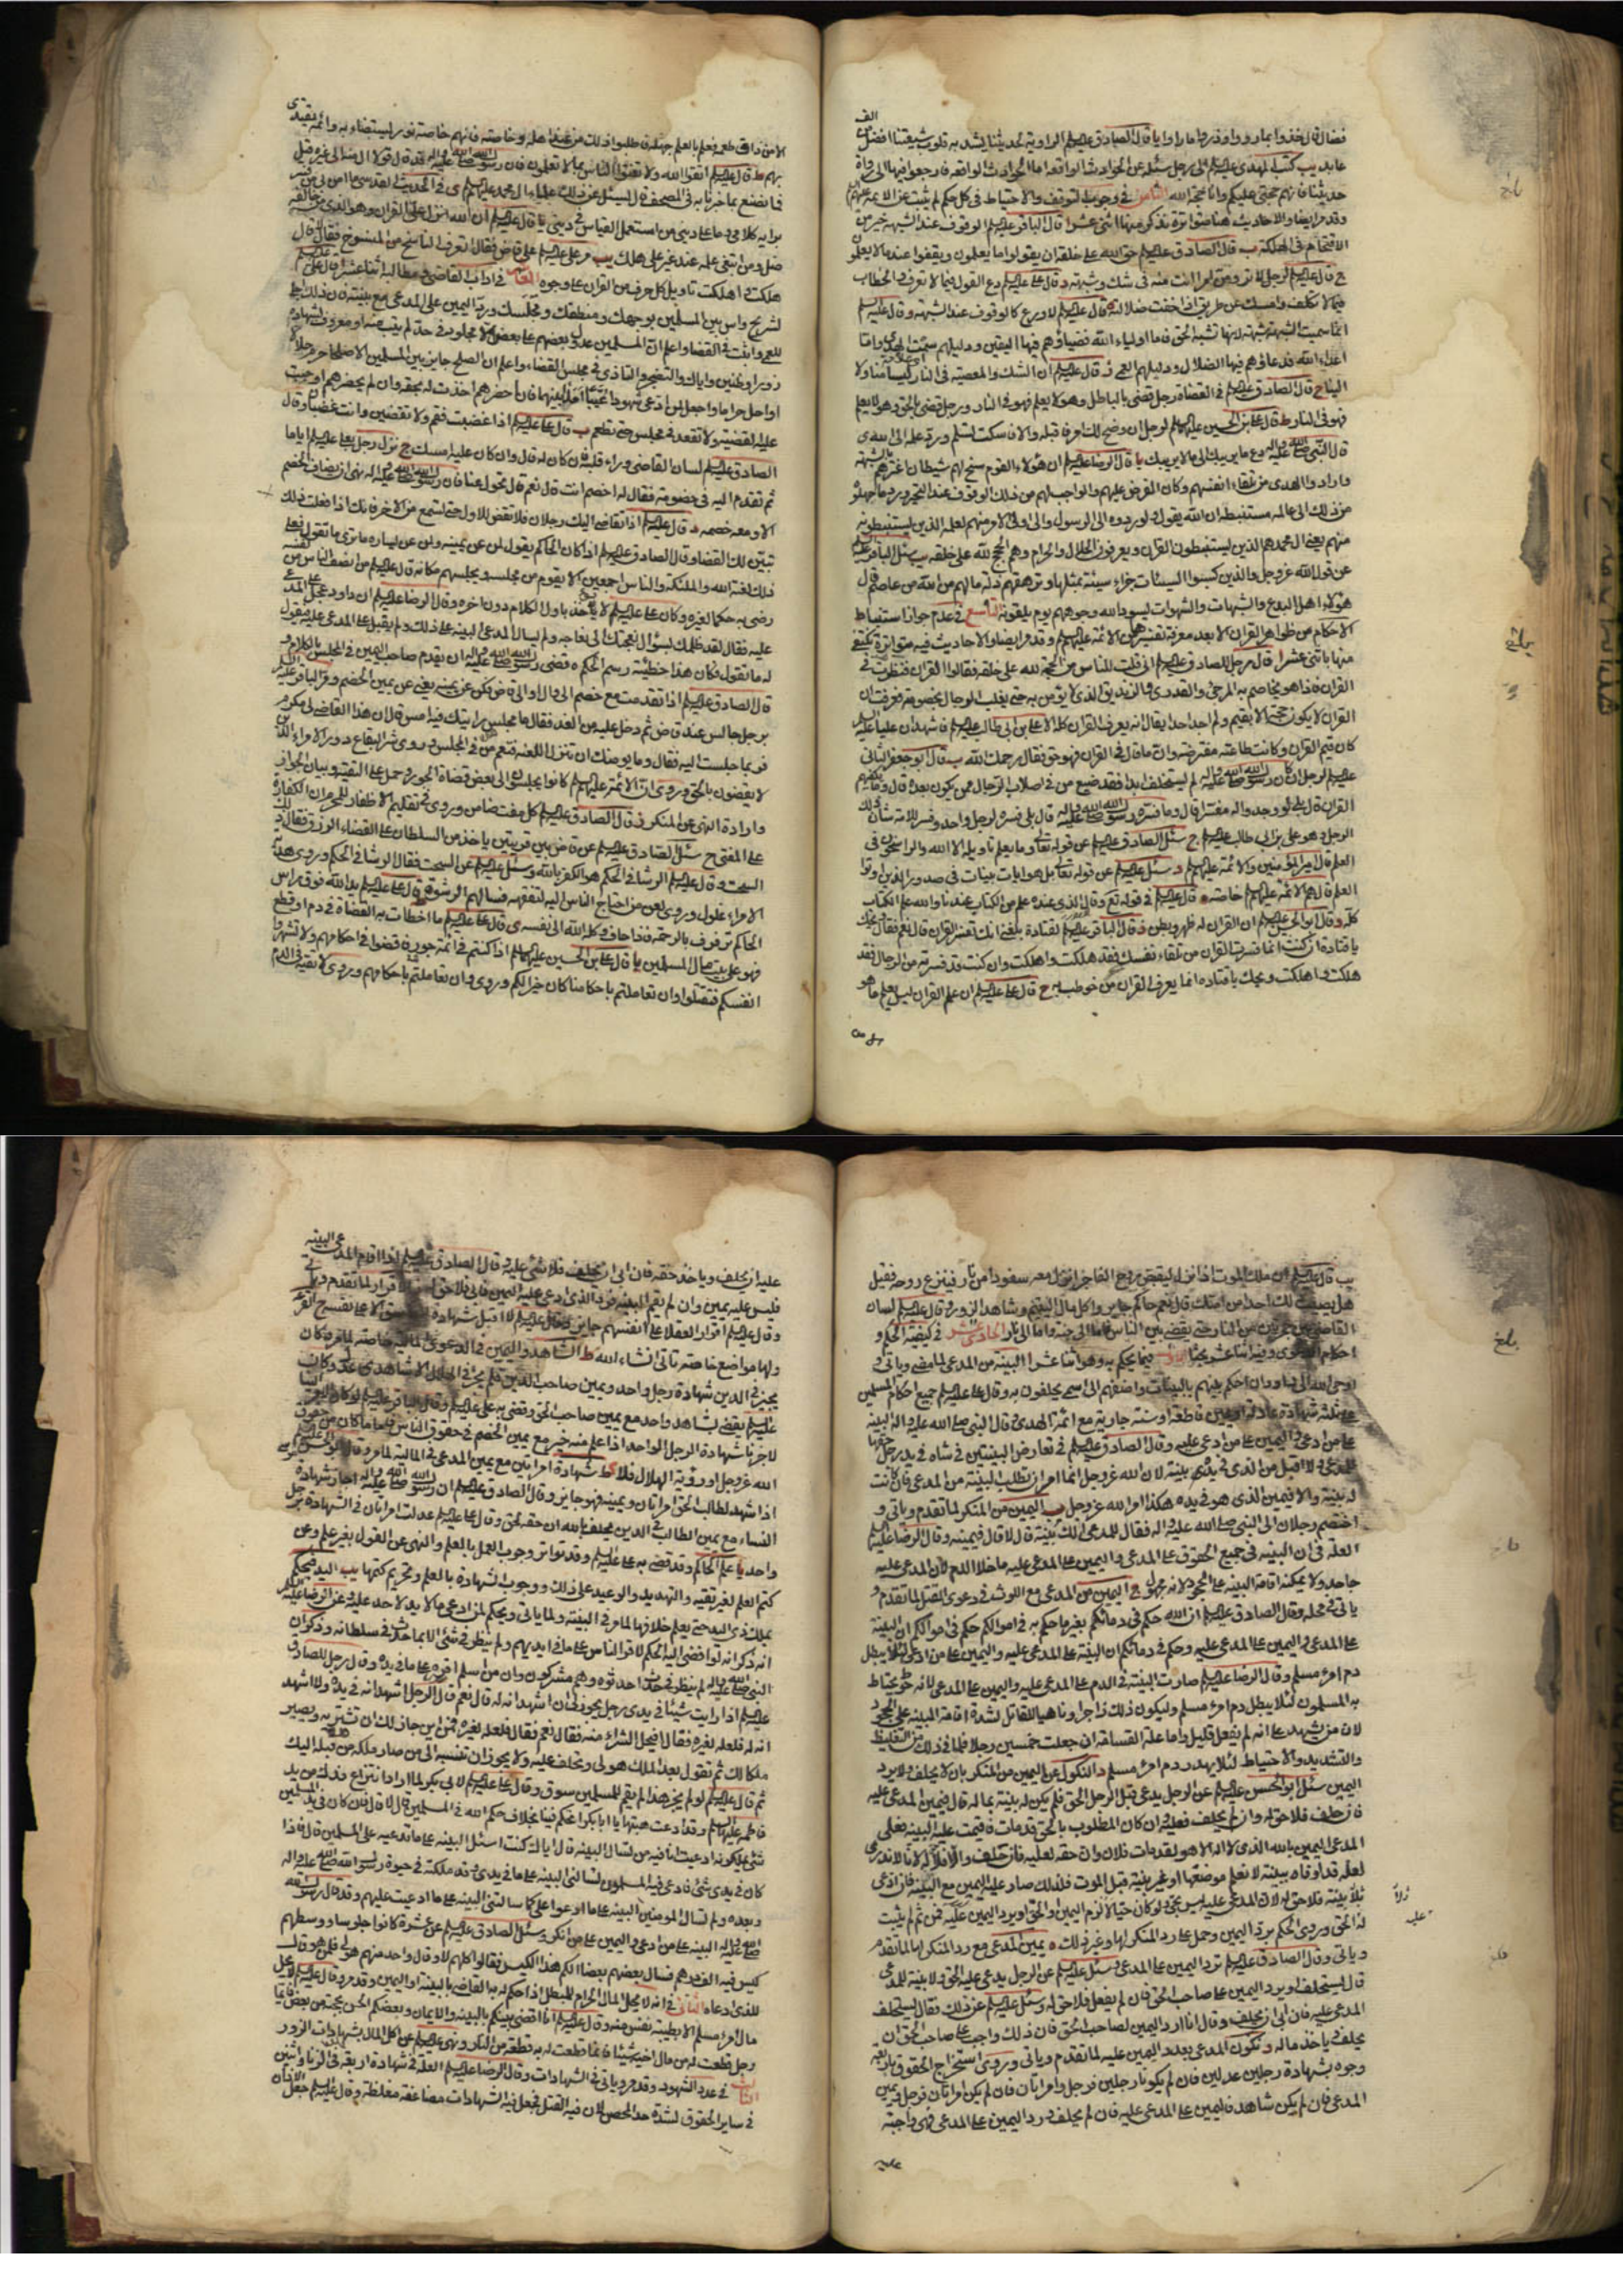 فضال قال خذوا بما رووا وذروا ما راوا يا قال الصادق عليه السلم الراوية لحديثنا يشد به قلوب شيعتنا افضل من الف
عابد يب كتب المهدى عليه السلم الى رجل سئله عن الحوادث الواقعه اما الحوادث الواقعه فارجعوا فيها الى رواة
حديثنا فانهم حجتى عليكم وانا حجة الله الثامن فى وجوب التوقف والاحتياط فى كل حكم لم يثبت عن الائمة عليهم
وقد مر ايضا والاحاديث هنا متواترة نذكر منها اثنى عشر ا قال الباقر عليه السلم الوقوف عند الشبهة خير من
الاقتحام فى الهلكة ب قال الصادق عليه السلم حق الله على خلقه ان يقولوا ما يعلمون ويقفوا عند ما لا يعلمون
ج قال عليه السلم لرجل لا تر ومن امر انت منه فى شك وشبهة د قال على عليه السلم دع القول فيما لا تعرف والخطاب
فيما لا تكلف وامسك عن طريق اذا خفت ضلالته قال عليه السلم لا ورع كالوقوف عند الشبهة وقال عليه السلم
انما سميت الشبهة شبهة لانها تشبه الحق فاما اولياء الله فضياؤهم فيها اليقين ودليلهم سمت الهدى واما
اعداء الله فدعاؤهم فيها الضلال ودليلهم العمى ز قال عليه السلم ان الشك والمعصية فى النار ليسا منا ولا
الينا ح قال الصادق عليه السلم فى القضاة رجل قضى بالباطل وهو لا يعلم فهو فى النار ورجل قضى بالحق وهو لا يعلم
فهو فى النار ط قال على بن الحسين عليهما السلم لرجل ان وضح لك امر فاقبله والا فاسكت تسلم ورد علمه الى الله ى
قال النبى صلى الله عليه واله دع ما يريبك الى ما لا يريبك يا قال الرضا عليه السلم ان هؤلاء القوم سنح لهم شيطان اغترهم بالشبهة
وارادوا الهدى من تلقاء انفسهم وكان الفرض عليهم والواجب لهم من ذلك الوقوف عند التحير ورد ما جهلوه
من ذلك الى عالمه مستنبطه ان الله يقول ولو ردوه الى الرسول والى اولى الامر منهم لعلمه الذين يستنبطونه
منهم يعنى ال محمد هم الذين يستنبطون القران ويعرفون الحلال والحرام وهم الحجج لله على خلقه يب سئل الباقر عليه
عن قول الله عز وجل والذين كسبوا السيئات جزاء سيئة بمثلها وترهقهم ذلة ما لهم من الله من عاصم قال
هؤلاء اهل البدع والشبهات والشهوات يسود الله وجوههم يوم يلقونه التاسع فى عدم جواز استنباط
الاحكام من ظواهر القران الا بعد معرفة تفسيرها من الائمة عليهم السلم وقد مر ايضا والاحاديث فيه متواترة نكتفى
منها باثنى عشر ا قال رجل للصادق عليه السلم انى قلت للناس من الحجة لله على خلقه فقالوا القران فنظرت فى
القران فاذا هو يخاصم به المرجى والقدرى والزنديق الذى لا يؤمن به حتى يغلب الرجال بخصومته فعرفت ان
القران لا يكون حجة الا بقيم ولم اجد احدا يقال انه يعرف القران كله الا على بن ابى طالب عليه السلم فاشهد ان عليا عليه السلم
كان قيم القران وكانت طاعته مفترضة وان ما قال فى القران فهو حق فقال رحمك الله ب قال ابو جعفر الثانى
عليه السلم لرجل ان كان رسول الله صلى الله عليه واله لم يستخلف ابدا فقد ضيع من فى اصلاب الرجال ممن يكون بعده قال وما يكفيهم
القران قال بلى لو وجدوا له مفسرا قال وما فسره رسول الله صلى الله عليه واله قال بلى فسره لرجل واحد وفسر للامة شان ذلك
الرجل وهو على بن ابى طالب عليه السلم ج سئل الصادق عليه السلم عن قوله تعالى وما يعلم تاويله الا الله والراسخون فى
العلم قال امير المؤمنين والائمة عليهم السلم د سئل عليه السلم عن قوله تعالى بل هو ايات بينات فى صدور الذين اوتوا
العلم قال هم الائمة عليهم السلم خاصة ه قال عليه السلم فى قوله تع وقال الذى عنده علم من الكتاب عندنا والله علم الكتاب
كله و قال ابو الحسن عليه السلم ان القران له ظهر وبطن ز قال الباقر عليه السلم لقتادة بلغنى انك تفسر القران قال نعم فقال ويحك
يا قتادة ان كنت انما فسرت القران من تلقاء نفسك فقد هلكت واهلكت وان كنت قد فسرته من الرجال فقد
هلكت واهلكت ويحك يا قتادة انما يعرف القران من خوطب به ح قال على عليه السلم ان علم القران ليس يعلم ما هو
الا من ذاق طعمه فعلم بالعلم جهله فاطلبوا ذلك من عند اهله وخاصته فانهم خاصة نور يستضاء به وائمة يقتدى
بهم ط قال عليه السلم اتقوا الله ولا تفتوا الناس بما لا تعلمون فان رسول الله صلى الله عليه واله قد قال قولا ال منه الى غيره قيل
فما نصنع بما خبرنا به فى المصحف قال يسئل عن ذلك علماء ال محمد عليهم السلم ى فى الحديث القدسى ما امن بى من فسر
برايه كلامى وما على دينى من استعمل القياس فى دينى يا قال عليه السلم ان الله انزل على القران وهو الذى من خالفه
ضل ومن ابتغى علمه عند غير على هلك يب مر على عليه السلم على قاض فقال اتعرف الناسخ من المنسوخ فقال لا قال
هلكت واهلكت تاويل كل حرف من القران على وجوه العاشر فى اداب القاضى ومطالبه اثنا عشر ا قال على عليه السلم
لشريح واس بين المسلمين بوجهك ومنطقك ومجلسك ورد اليمين على المدعى مع بينته فان ذلك اجلى
للعمى واثبت فى القضاء واعلم ان المسلمين عدول بعضهم على بعض الا مجلود فى حد لم يتب منه او معروف بشهادة
زور او ظنين واياك والتضجر والتاذى فى مجلس القضاء واعلم ان الصلح جايز بين المسلمين الا صلحا حرم حلالا
او احل حراما واجعل لمن ادعى شهودا غيبا امدا بينهما فان احضرهم اخذت له بحقه وان لم يحضرهم اوجبت
عليه القضية ولا تقعد فى مجلس حتى تطعم ب قال على عليه السلم اذا غضبت فقم ولا تقضين وانت غضبان وقال
الصادق عليه السلم لسان القاضى وراء قلبه فان كان له قال وان كان عليه امسك ج نزل رجل بعلى عليه السلم اياما
ثم تقدم اليه فى خصومة فقال له اخصم انت قال نعم قال تحول عنا فان رسول الله صلى الله عليه واله نهى ان يضاف الخصم
الا ومعه خصمه د قال عليه السلم اذا تقاضى اليك رجلان فلا تقض للاول حتى تسمع من الاخر فانك اذا فعلت ذلك
تبين لك القضاء وقال الصادق عليه السلم اذا كان الحاكم يقول لمن عن يمينه ولمن عن يساره ما ترى ما تقول فعلى
ذلك لعنة الله والملئكة والناس اجمعين الا يقوم من مجلسه ويجلسهم مكانه قال عليه السلم من انصف الناس من نفسه
رضى به حكما لغيره وكان على عليه السلم لا ياخذ باول الكلام دون اخره وقال الرضا عليه السلم ان داود عجل على المدعى
عليه فقال لقد ظلمك بسؤال نعجتك الى نعاجه ولم يسال المدعى البينة على ذلك ولم يقبل على المدعى عليه فيقول
له ما تقول فكان هذا خطيئة رسم الحكم ه قضى رسول الله صلى الله عليه واله ان يقدم صاحب اليمين فى المجلس بالكلام و
قال الصادق عليه السلم اذا تقدمت مع خصم الى وال او الى قاض فكن عن يمينه يعنى عن يمين الخصم و مر الباقر عليه السلم
برجل جالس عند قاض ثم دخل عليه من الغد فقال ما مجلس رايتك فيه امس قال ان هذا القاضى لى مكرم
فربما جلست اليه فقال وما يومنك ان تنزل اللعنة فتعم من فى المجلس وروى شر البقاع دور الامراء الذين
لا يقضون بالحق وروى ان الائمة عليهم السلم كانوا يجلسون الى بعض قضاة الجور وحمل على التقية وبيان الجواز
واردة النهى عن المنكر ز قال الصادق عليه السلم كل مفت ضامن وروى فى تقليم الاظفار للمحرم ان الكفارة
على المفتى ح سئل الصادق عليه السلم عن قاض بين قريتين ياخذ من السلطان على القضاء الرزق فقال ذلك
السحت وقال عليه السلم الرشا فى الحكم هو الكفر بالله وسئل عليه السلم عن السحت فقال الرشا فى الحكم وروى هدية
الامراء غلول وروى لعن من احتاج الناس اليه لتفقهه فسالهم الرشوة ط قال على عليه السلم يد الله فوق راس
الحاكم ترفرف بالرحمة فاذا حاف وكله الله الى نفسه ى قال على عليه السلم ما اخطات به القضاة فى دم او قطع
فهو على بيت مال المسلمين يا قال على بن الحسين عليهما السلم اذا كنتم فى ائمة جور فاقضوا فى احكامهم ولا تشهروا
انفسكم فتقتلوا وان تعاملتم باحكامنا كان خيرا لكم وروى وان تعاملتم باحكامهم وروى لا تقية فى الدم
يب قال عليه السلم ان ملك الموت اذا نزل ليقبض روح الفاجر انزل معه سفودا من نار فينزع روحه فقيل
هل يصيب ذلك احدا من امتك قال نعم حاكم جاير واكل مال اليتيم وشاهد الزور وقال عليه السلم لسان
القاضى بين جمرتين من النار حتى يقضى بين الناس فاما الى جنة واما الى نار الحادى عشر فى كيفية الحكم و
احكام الدعوى وفيه اثنا عشر بحثا الاول فيما يحكم به وهو اثنا عشر ا البينة من المدعى لما مضى وياتى و
اوحى الله الى داود ان احكم بينهم بالبينات واضفهم الى اسمى يحلفون به وقال على عليه السلم جميع احكام المسلمين
على ثلثة شهادة عادلة او يمين قاطعة او سنة جارية مع ائمة الهدى وقال النبى صلى الله عليه واله البينة
على من ادعى واليمين على من ادعى عليه وقال الصادق عليه السلم فى تعارض البينتين فى شاة فى يد رجل حقها
للمدعى ولا اقبل من الذى فى يديه بينة لان الله عز وجل انما امر ان تطلب البينة من المدعى فان كانت
له بينة والا فيمين الذى هو فى يده هكذا امر الله عز وجل ب اليمين من المنكر لما تقدم وياتى و
اختصم رجلان الى النبى صلى الله عليه واله فقال للمدعى الك بينة قال لا قال فيمينه وقال الرضا عليه السلم
العلة فى ان البينة فى جميع الحقوق على المدعى واليمين على المدعى عليه ما خلا الدم لان المدعى عليه
جاحد ولا يمكنه اقامة البينة على الجحود لانه مجهول ج اليمين من المدعى مع اللوث فى دعوى القتل لما تقدم و
ياتى فى محله وقال الصادق عليه السلم ان الله حكم فى دمائكم بغير ما حكم به فى اموالكم حكم فى اموالكم ان البينة
على المدعى واليمين على المدعى عليه وحكم فى دمائكم ان البينة على المدعى عليه واليمين على من ادعى لئلا يبطل
دم امرء مسلم وقال الرضا عليه السلم صارت البينة فى الدم على المدعى عليه واليمين على المدعى لانه حوط يحتاط
به المسلمون لئلا يبطل دم امرء مسلم وليكون ذلك زاجرا وناهيا للقاتل لشدة اقامة البينة على الجحود
لان من يشهد على انه لم يفعل قليل واما علة القسامة ان جعلت خمسين رجلا فلما فى ذلك من التغليظ
والتشديد والاحتياط لئلا يهدر دم امرء مسلم د النكول عن اليمين من المنكر بان لا يحلف ولا يرد
اليمين سئل ابو الحسن عليه السلم عن الرجل يدعى قبل الرجل الحق فلم يكن له بينة بماله قال فيمين المدعى عليه
فان حلف فلا حق له وان لم يحلف فعليه وان كان المطلوب بالحق قد مات فاقيمت عليه البينة فعلى
المدعى اليمين بالله الذى لا اله الا هو لقد مات فلان وان حقه لعليه فان حلف والا فلا حق له لانا لا ندرى
لعله قد اوفاه ببينة لا نعلم موضعها او بغير بينة قبل الموت فلذلك صار عليه اليمين مع البينة فان ادعى
بلا بينة فلا حق له لان المدعى عليه ليس بحى ولو كان حيا لالزم اليمين او الحق او يرد اليمين عليه فمن ثم لم يثبت
له الحق وروى الحكم برد اليمين وحمل على رد المنكر لها وغير ذلك ه يمين المدعى مع رد المنكر لها لما تقدم
وياتى وقال الصادق عليه السلم ترد اليمين على المدعى وسئل عليه السلم عن الرجل يدعى عليه الحق ولا بينة للمدعى
قال يستحلف او يرد اليمين على صاحب الحق فان لم يفعل فلا حق له وسئل عليه السلم عن ذلك فقال يستحلف
المدعى عليه فان ابى ان يحلف وقال انا ارد اليمين لصاحب الحق فان ذلك واجب على صاحب الحق ان
يحلف وياخذ ماله و نكول المدعى بعد رد اليمين عليه لما تقدم وياتى وروى استخراج الحقوق باربعة
وجوه بشهادة رجلين عدلين فان لم يكونا رجلين فرجل وامراتان فان لم يكن امراتان فرجل ويمين
المدعى فان لم يكن شاهد فاليمين على المدعى عليه فان لم يحلف ورد اليمين على المدعى فهى واجبة
عليه ان يحلف وياخذ حقه فان ابى ان يحلف فلا شئ عليه وقال الصادق عليه السلم اذا اقام المدعى البينة
فليس عليه يمين وان لم يقم البينة فرد الذى ادعى عليه اليمين فابى فلا حق له الاقرار لما تقدم وياتى
وقال عليه السلم اقرار العقلاء على انفسهم جايز وقال عليه السلم لا اقبل شهادة الفاسق الا على نفسه ح القرعة
ولها مواضع خاصة تاتى انشاء الله ط الشاهد واليمين فى الدعوى المالية خاصة لما مر كان
يجيز فى الدين شهادة رجل واحد ويمين صاحب الدين فلم يجز فى الهلال الا شاهدى عدل وكان
عليه السلم يقضى بشاهد واحد مع يمين صاحب الحق وقضى به على عليه السلم وقال الباقر عليه السلم لو كان الامر الينا
لاجزنا شهادة الرجل الواحد اذا علم منه خير مع يمين الخصم فى حقوق الناس فاما ما كان من حقوق
الله عز وجل او رؤية الهلال فلا ى شهادة امراتين مع يمين المدعى فى المالية لما مر وقال ابو الحسن عليه السلم
اذا شهد لطالب الحق امراتان ويمينه فهو جايز وقال الصادق عليه السلم ان رسول الله صلى الله عليه واله اجاز شهادة
النساء مع يمين الطالب فى الدين يحلف بالله ان حقه لحق وقال على عليه السلم عدلت امراتان فى الشهادة برجل
واحد يا علم الحاكم وقد قضى به على عليه السلم وقد تواتر وجوب العمل بالعلم والنهى عن القول بغير علم وعن
كتم العلم لغير تقية والتهديد والوعيد على ذلك ووجوب الشهادة بالعلم وتحريم كتمها يب اليد فيحكم
بملك ذى اليد حتى يعلم خلافها لما مر فى البينة ولما ياتى ويحكم لمن ادعى ما لا يد لاحد عليه وعن الرضا عليه السلم
انه ذكر انه لو افضى اليه الحكم لاقر الناس على ما فى ايديهم ولم ينظر فى شئ الا بما حدث فى سلطانه وذكر ان
النبى صلى الله عليه واله لم ينظر فى حدث احدثوه وهم مشركون وان من اسلم اقره على ما فى يده وقال رجل للصادق
عليه السلم اذا رايت شيئا فى يدى رجل يجوز لى ان اشهد انه له قال نعم قال الرجل اشهد انه فى يده ولا اشهد
انه له فلعله لغيره فقال افيحل الشراء منه فقال نعم فقال فلعله لغيره فمن اين جاز لك ان تشتريه ويصير
ملكا لك ثم تقول بعد الملك هو لى وتحلف عليه ولا يجوز ان تنسبه الى من صار ملكه من قبله اليك
ثم قال عليه السلم لو لم يجز هذا لم يقم للمسلمين سوق وقال على عليه السلم لابى بكر لما اراد انتزاع فدك من يد
فاطمة عليها السلم وقد ادعت هبتها يا ابا بكر اتحكم فينا بخلاف حكم الله فى المسلمين قال لا قال فان كان فى يد المسلمين
شئ يملكونه ادعيت انا فيه من تسال البينة قال اياك كنت اسئل البينة على ما تدعيه على المسلمين قال فاذا
كان فى يدى شئ فادعى فيه المسلمون تسالنى البينة على ما فى يدى وقد ملكته فى حيوة رسول الله صلى الله عليه واله
وبعده ولم تسال المؤمنين البينة على ما ادعوا على كما سالتنى البينة على ما ادعيت عليهم وقد قال رسول الله
صلى الله عليه واله البينة على من ادعى واليمين على من انكر وسئل الصادق عليه السلم عن عشرة كانوا جلوسا ووسطهم
كيس فيه الف درهم فسال بعضهم بعضا الكم هذا الكيس فقالوا كلهم لا وقال واحد منهم هو لى فلمن هو قال
للذى ادعاه الثانى فى انه لا يحل المال الحرام للمبطل اذا حكم له به القاضى بالبينة او اليمين وقد مر وقال عليه السلم لا يحل
مال امرء مسلم الا بطيبة نفس منه وقال عليه السلم انما اقضى بينكم بالبينة والايمان وبعضكم الحن بحجته من بعض فايما
رجل قطعت له من مال اخيه شيئا فانما قطعت له به قطعة من النار ونهى عليه السلم عن اكل المال بشهادات الزور
الثالث فى عدد الشهود وقد مر وياتى فى الشهادات وقال الرضا عليه السلم العلة فى شهادة اربعة فى الزنا واثنين
فى ساير الحقوق لشدة حد المحصن لان فيه القتل فجعل فيه الشهادات مضاعفة مغلظة وقال عليه السلم جعل